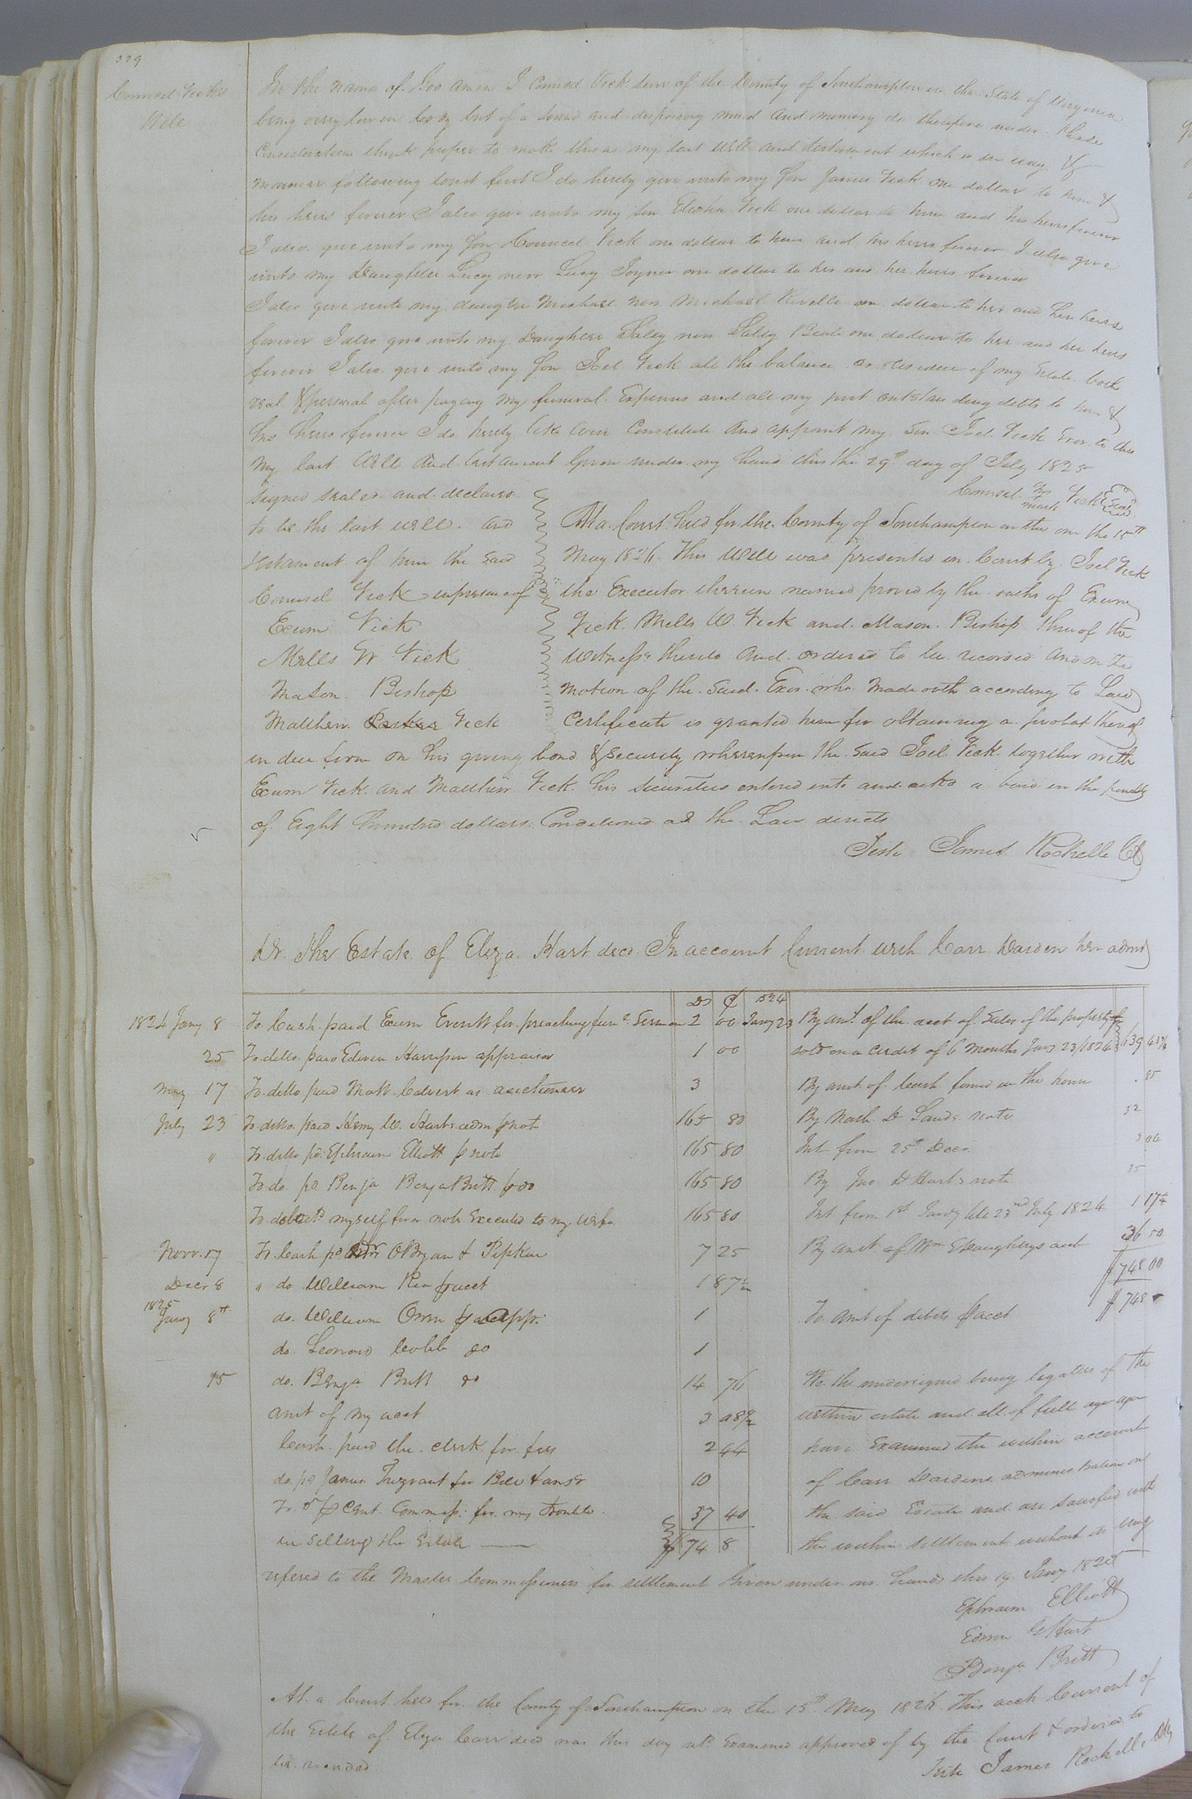 Counsel Vick's
Will
In the name of God amen I Counsel Vick senr of the County of Southampton in the State of Virginia
being very low in body but of a sound and disposing mind and memory do therefore under these
Consideration think proper to make this as my last will and testament which is in way &
manner following to wit first I do hereby give unto my Son James Vick one dollar to him &
his heirs forever I also give unto my son Elisha Vick one dollar to him and his heirs forever
I also give unto my Son Council Vick one dollar to him and his heirs forever I also give
unto my Daughter Lucy now Lucy Joyner one dollar to her and her heirs forever
I also give unto my daughter Michael now Michael Rivelle one dollar to her and her heirs
forever I also give unto my Daughter Salley now Salley Beale one dollar to her and her heirs
forever I also give unto my Son Joel Vick all the balance or residue of my Estate both
real & personal after paying my funeral Expenses and all my just outstanding debts to him &
his heirs forever I do hereby like wise Constitute and appoint my Son Joel Vick Exor to this
my last Will and testament Given under my hand this the 29th day of July 1825
Signed sealed and declared
Counsel his mark Vick Seal
to be the last will and
testament of him the said
Counsel Vick in presence of
Exum Vick
Mills W Vick
Mason Bishop
Matthew Vick
At a Court held for the County of Southampton on the 15th
May 1826 This Will was presented in Court by Joel Vick
the Executor therein named proved by the oaths of Exum
Vick Mills W. Vick and Mason Bishop three of the
witness thereto and ordered to be recorded and on the
motion of the said Exor who made oath according to Law
Certificate is granted him for obtaining a probat thereof
in due form on his giving bond & security whereupon the said Joel Vick together with
Exum Vick and Matthew Vick his securities entered into and ackd a bond in the penalty
of Eight hundred dollars Conditioned as the Law directs
Teste James Rochelle Clk
Dr. The Estate of Eliza Hart decd In account Current with Carr Darden her admr
Ds Ct 1824
1824 Jany 8 To Cash paid Exum Everitt for preaching funl Sermon 2 00 Jany 23 By amt. of the acct of Sales of the property
25 To ditto paid Edwin Harrison appraiser 1 00 sold on a credit of 6 months Jany 23 1824
May 17 To ditto paid Math Calvert as auctioneer 3 By amt of Cash found in the house
July 23 To ditto paid Henry W. Hart admr pr note 165 80 By note
" To ditto pd Ephraim Elliott pr note 165 80 Int from 25th Decr
To do. pd Benja Britt pr do 165 80 By Jno D Hart's note
To debets myself for a note Executed to my wife 165 80 Int from 1st Jany till 23rd July 1824 1 17½
Novr. 17 To Cash pd OBryan & Pipkin 7 25 By amt of Wm acct 36 00
Decr 8 " do William acct 1 87½ $748 00
1825
Jany 8th do. William Orrin 1 To amt of debits pr acct $748
do. Leonard Cobb do 1
15 do. Benja Britt do 14 76 We the undersigned being legatees of the
amt of my acct 3 within estate and all of full age
Cash paid the clerk for fees 2 44 have Examined the within account
do. pd James Trezvant for Bill & ansr 10 of Carr Dardens administration on
To 5 pr Cent Commiss. for my trouble 37 40 the said Estate and are satisfied with
in selling the Estate $ 74 8 the within settlement without its being
refered to the Master Commissioners for settlement Given under our hands this 19 Jany 1825
Ephraim Elliott
Edwin Hart
Benja Britt
At a Court held for the County of Southampton on the 15th May 1826 This acct Current of
the Estate of Eliza Carr decd was this day Examined approved of by the Court & ordered to
be recorded
Teste James Rochelle Clk